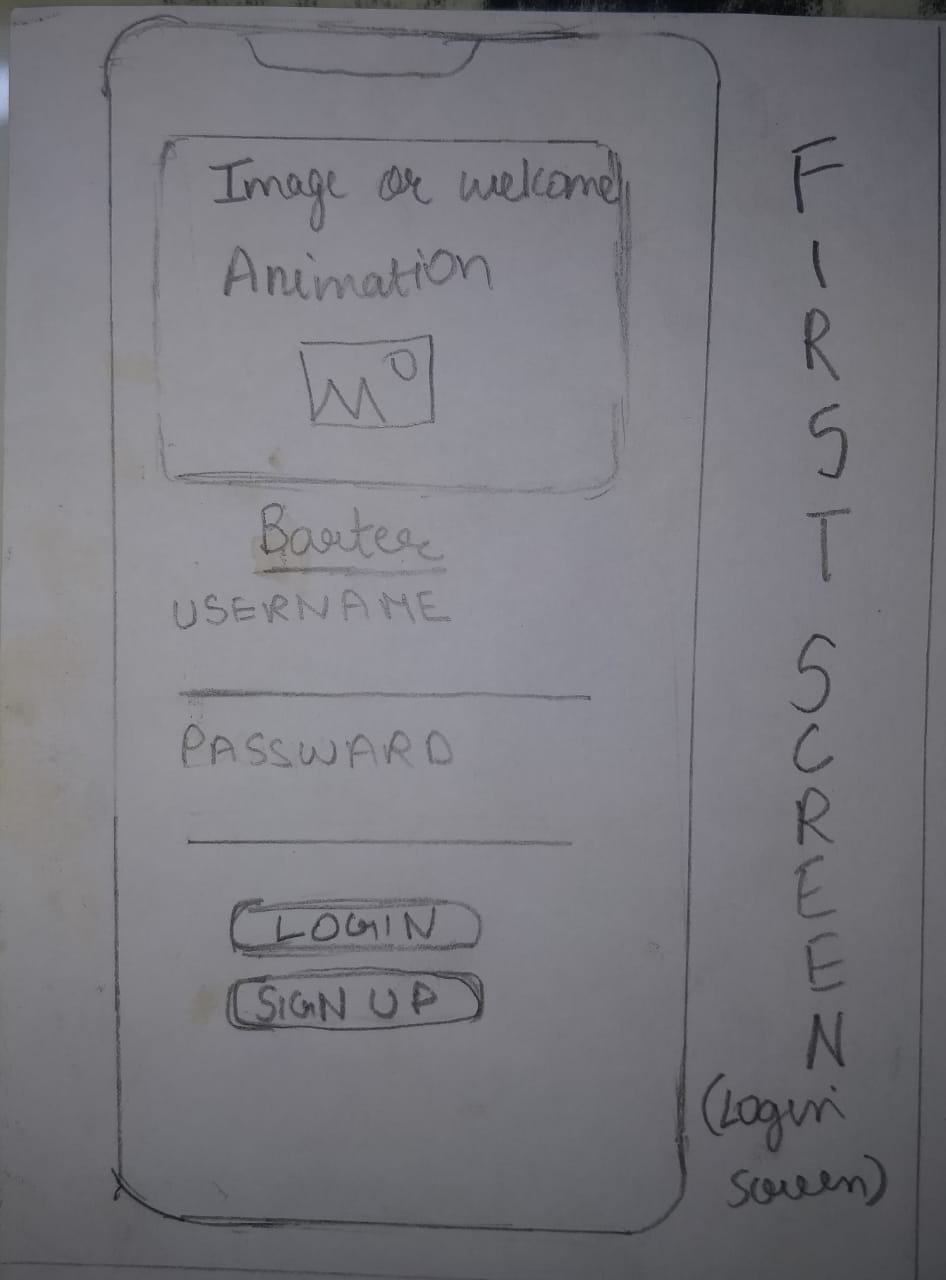 Image or welcome
Animation
Barter
USERNAME
PASSWARD
LOGIN
SIGN UP
FIRST SCREEN
(Login
screen)